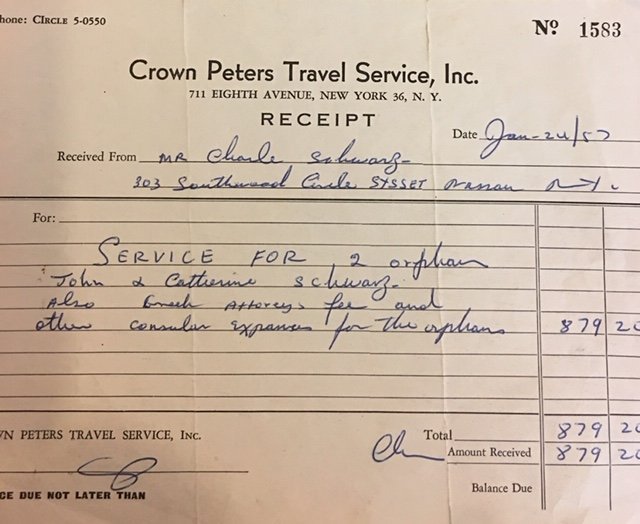 hone: CIRCLE 5-0550
Nº 1583
Crown Peters Travel Service, Inc.
711 EIGHTH AVENUE, NEW YORK 36, N. Y.
RECEIPT
Date Jan-24/57
Received From MR Charle Schwarz
303 Southwood Circle SYSSET Nassau N.Y.
For:
SERVICE FOR 2 orphan
John & Catherine Schwarz.
Also Greek Attorneys fee and
other consular expanses for the orphans 879 20
Total 879 20
WN PETERS TRAVEL SERVICE, INC.
Amount Received 879 20
Balance Due
CE DUE NOT LATER THAN